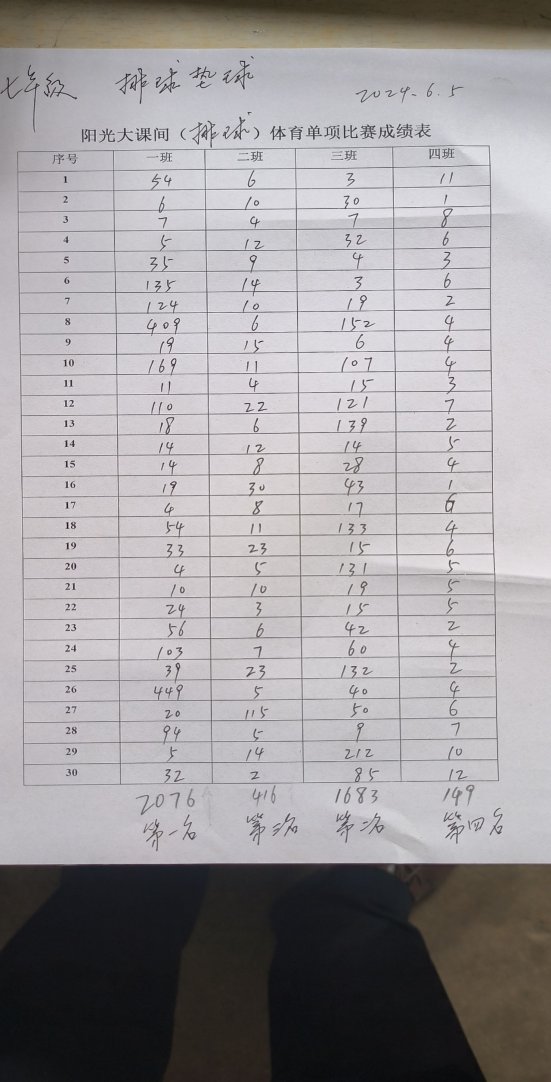 七年级 排球垫球 2024.6.5
阳光大课间（排球）体育单项比赛成绩表
序号 一班 二班 三班 四班
1 54 6 3 11
2 6 10 30 1
3 7 4 7 8
4 5 12 32 6
5 35 9 4 3
6 135 14 3 6
7 124 10 19 2
8 409 6 152 4
9 19 15 6 4
10 169 11 107 4
11 11 4 15 3
12 110 22 121 7
13 18 6 139 2
14 14 12 14 5
15 14 8 28 4
16 19 30 43 1
17 4 8 17 6
18 54 11 133 4
19 33 23 15 6
20 4 5 131 5
21 10 10 19 5
22 24 3 15 5
23 56 6 42 2
24 103 7 60 4
25 39 23 132 2
26 449 5 40 4
27 20 115 50 6
28 94 5 9 7
29 5 14 212 10
30 32 2 85 12
2076 416 1683 149
第一名 第三名 第二名 第四名